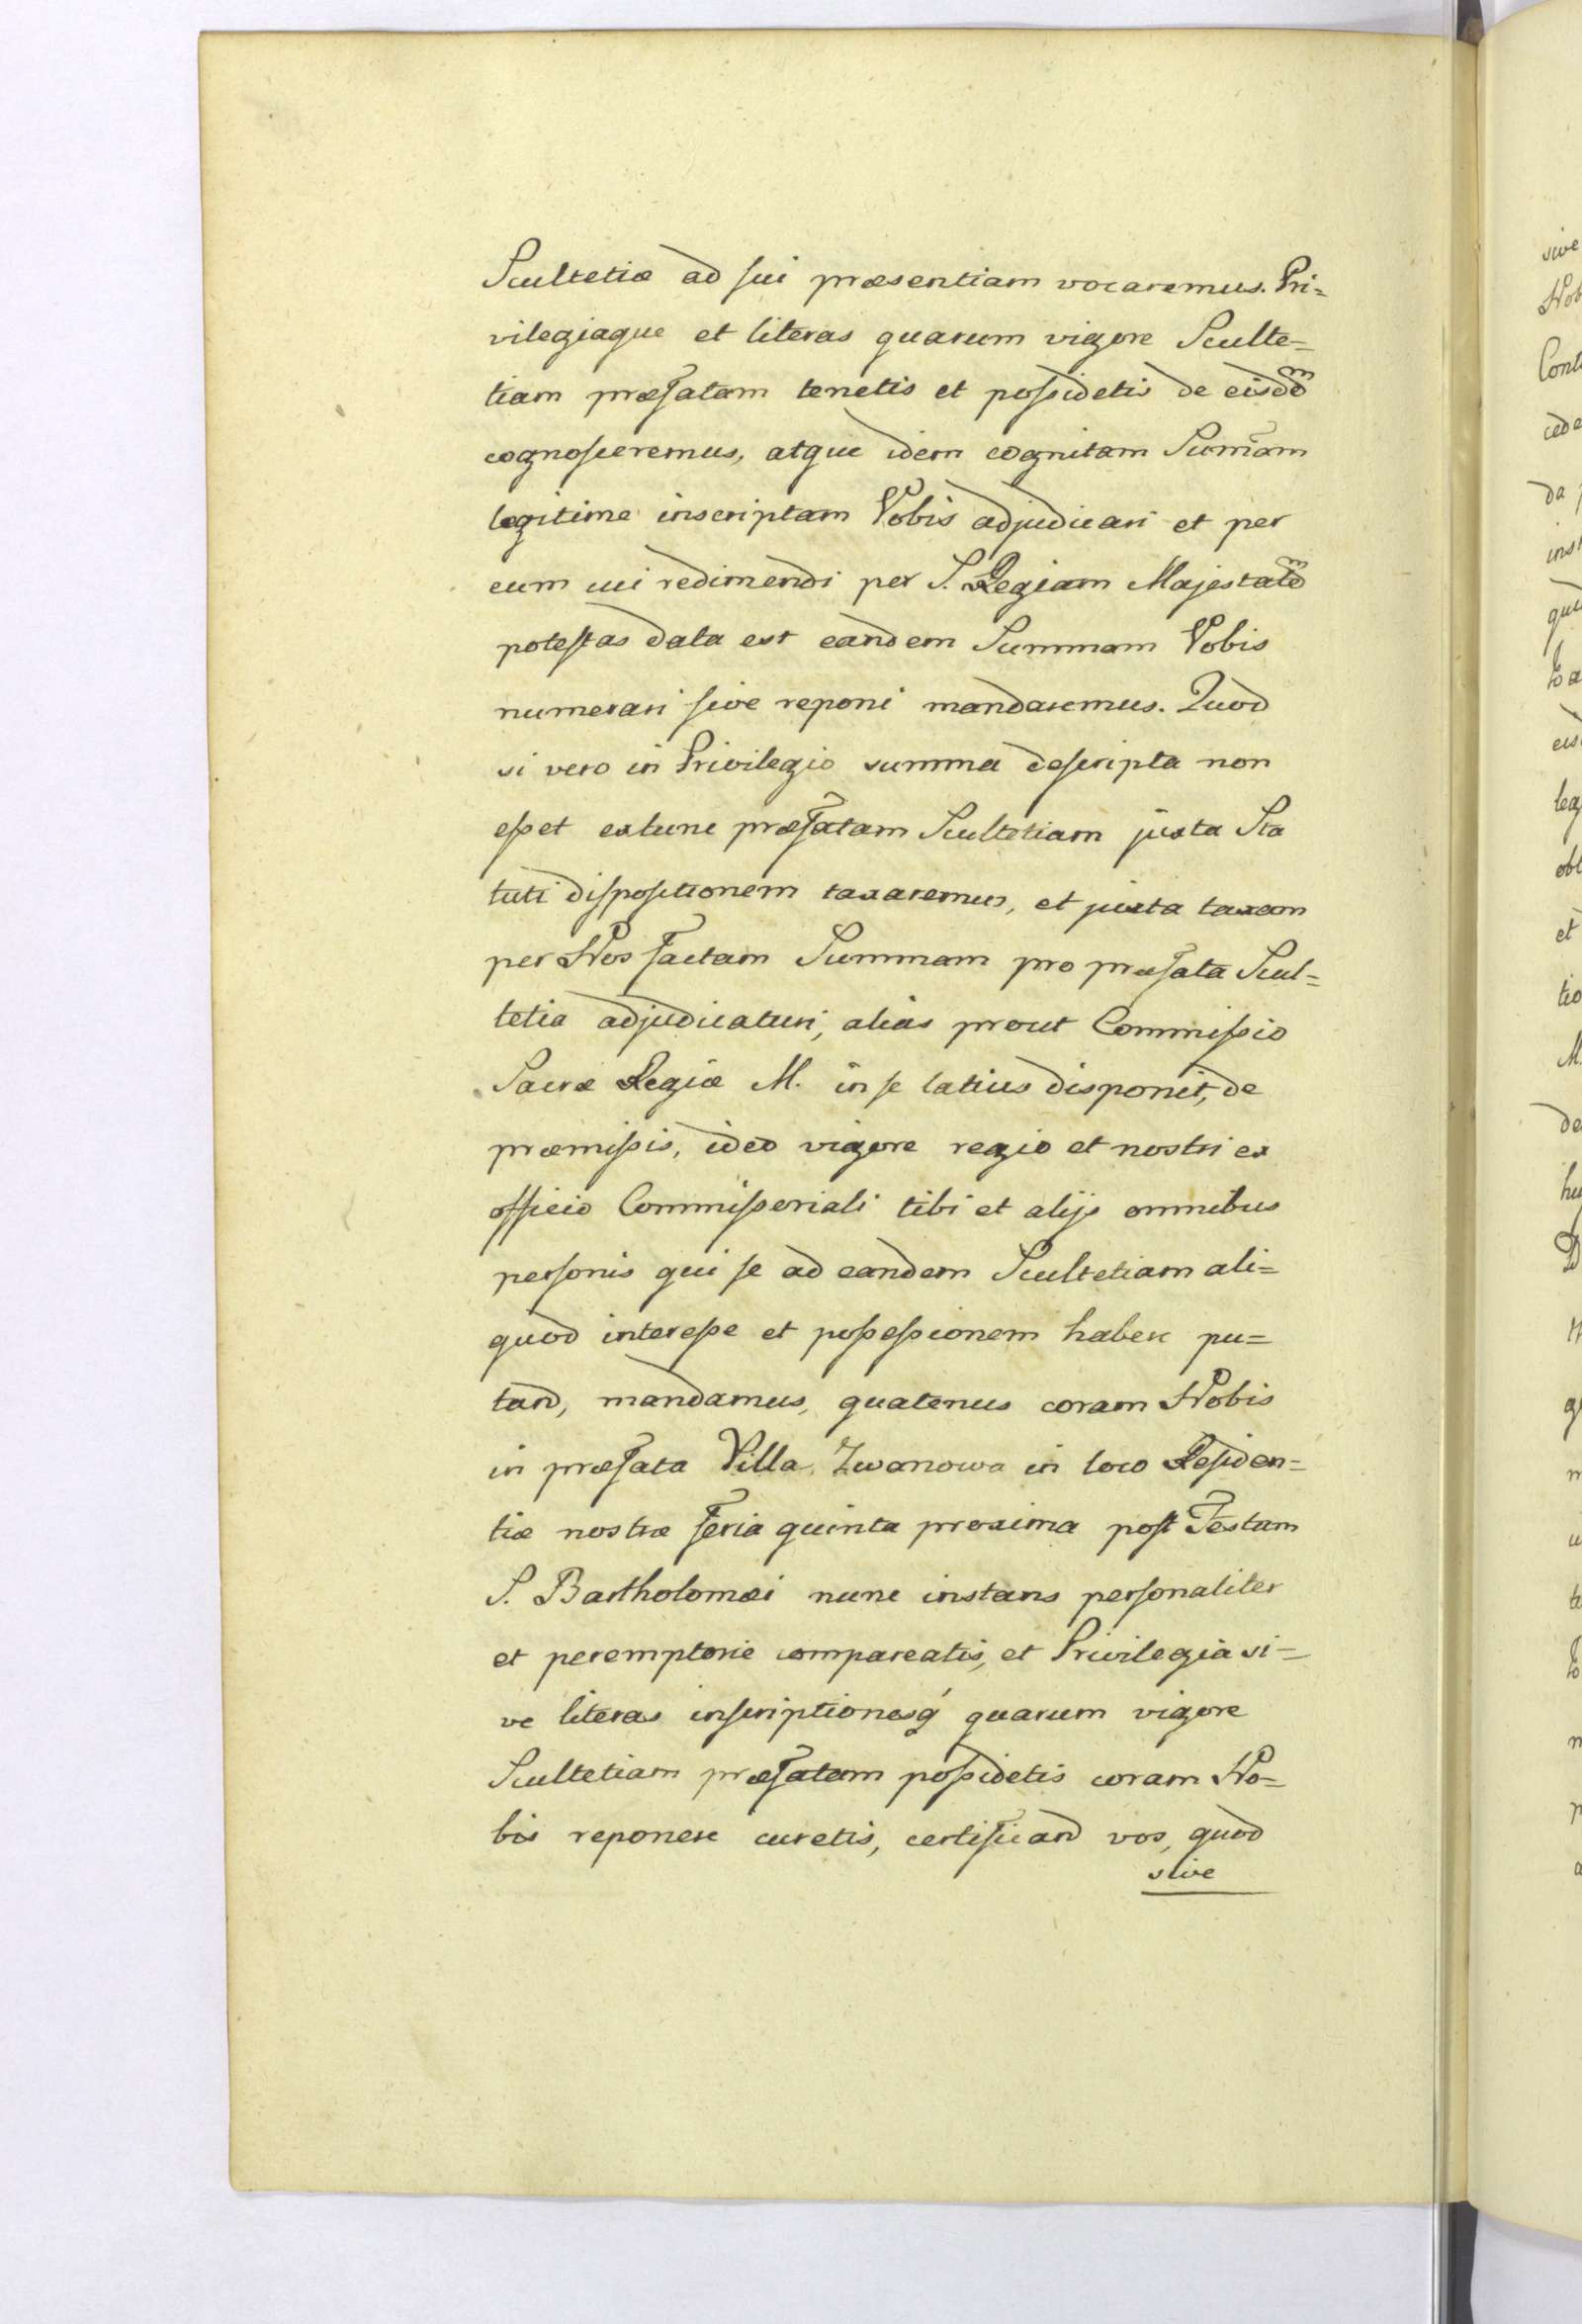 Scultetiæ ad sui præsentiam vocaremus. Pri=
vilegiaque et literas quarum vigore Sculte=
tiam præfatam tenetis et possidetis de eisdem
cognosceremus, atque idem cognitam Sum̄am
legitime inscriptam Vobis adjudicari et per
eum cui redimendi per S. Regiam Majestatem
potestas data est eandem Summam Vobis
numerari sive reponi mandaremus. Quod
si vero in Privilegio summa descripta non
esset extunc præfatam Scultetiam juxta Sta
tuti dispositionem taxaremus, et juxta taxam
per Nos factam Summam pro præfata Scul=
tetia adjudicaturi, alias prout Commissio
Sacræ Regiæ M. in se latius disponit, de
præmissis, ideo vigore regio et nostri ex
officio Commisseriali tibi et alijs omnibus
personis qui se ad eandem Scultetiam ali=
quod interesse et possessionem habere pu=
tand, mandamus, quatenus coram Nobis
in præfata Villa Zwanowa in loco Residen=
tiæ nostræ feria quinta proxima post Festum
S. Bartholomæi nunc instans personaliter
et peremptorie compareatis, et Privilegia si=
ve literas inscriptionesq́ quarum vigore
Scultetiam præfatam possidetis coram No=
bis reponere curetis, certificand vos, quod
sive